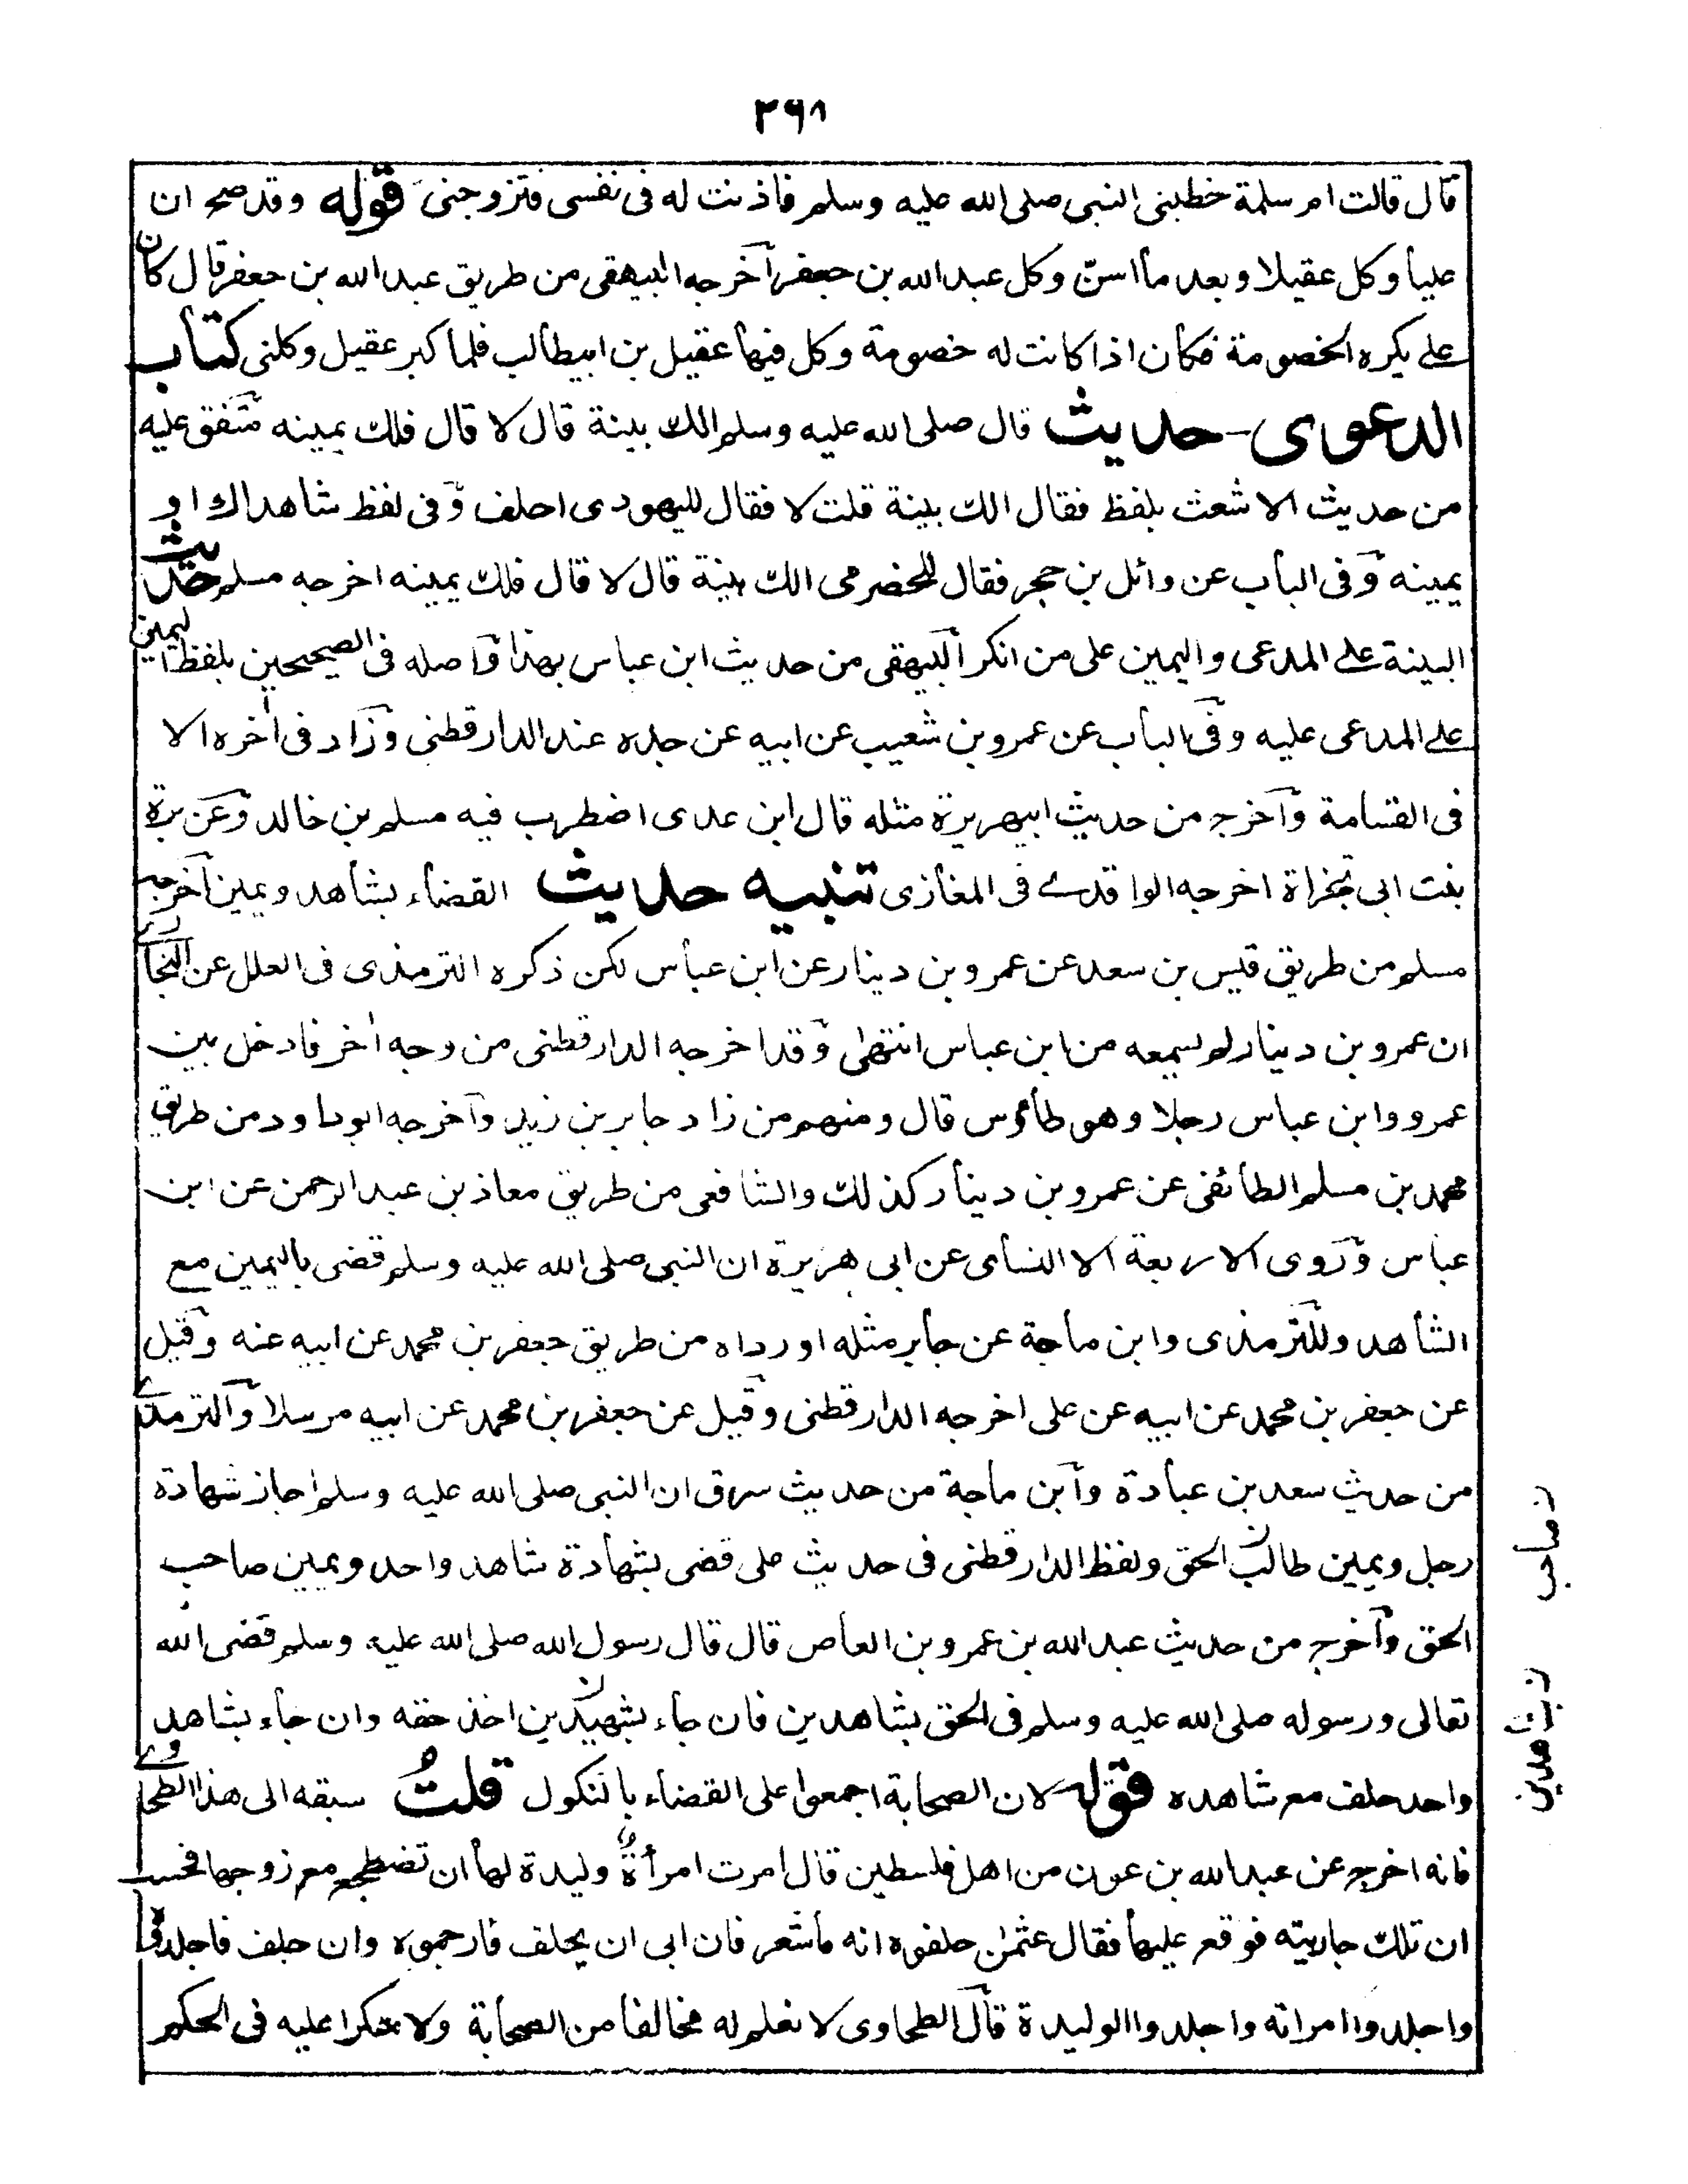 ٢٩٨
قال قالت ام سلمة خطبنى النبى صلى الله عليه وسلم فاذنت له فى نفسى فتزوجنى قوله وقد صح ان
عليا وكل عقيلا وبعد ما اسنّ وكل عبد الله بن جعفر اخرجه البيهقى من طريق عبد الله بن جعفر قال كان
على يكره الخصومة فكان اذا كانت له خصومة وكل فيها عقيل بن ابيطالب فلما كبر عقيل وكلنى كتاب
الدعوى - حديث قال صلى الله عليه وسلم الك بينة قال لا قال فلك يمينه متفق عليه
من حديث الاشعث بلفظ فقال الك بينة قلت لا فقال لليهودى احلف وفى لفظ شاهداك او
يمينه وفى الباب عن وائل بن حجر فقال للحضرمى الك بينة قال لا قال فلك يمينه اخرجه مسلم حديث
البينة على المدعى واليمين على من انكر البيهقى من حديث ابن عباس بهذا واصله فى الصحيحين بلفظ اليمين
على المدعى عليه وفى الباب عن عمرو بن شعيب عن ابيه عن جده عند الدارقطنى وزاد فى اخره الا
فى القسامة واخرج من حديث ابيهريرة مثله قال ابن عدى اضطرب فيه مسلم بن خالد وعن برة
بنت ابى تجزاة اخرجه الواقدى فى المغازى تنبيه حديث القضاء بشاهد ويمين اخرجه
مسلم من طريق قيس بن سعد عن عمرو بن دينار عن ابن عباس لكن ذكره الترمذى فى العلل عن البخارى
ان عمرو بن دينار لم يسمعه من ابن عباس انتهى وقد اخرجه الدارقطنى من وجه اخر فادخل بين
عمرو وابن عباس رجلا وهو طاؤس قال ومنهم من زاد جابر بن زيد واخرجه ابوداود من طريق
محمد بن مسلم الطائفى عن عمرو بن دينار كذلك والشافعى من طريق معاذ بن عبد الرحمن عن ابن
عباس وروى الاربعة الا النسأى عن ابى هريرة ان النبى صلى الله عليه وسلم قضى باليمين مع
الشاهد وللترمذى وابن ماجة عن جابر مثله اورداه من طريق جعفر بن محمد عن ابيه عنه وقيل
عن جعفر بن محمد عن ابيه عن على اخرجه الدارقطنى وقيل عن جعفر بن محمد عن ابيه مرسلا والترمذى
من حديث سعد بن عبادة وابن ماجة من حديث سرق ان النبى صلى الله عليه وسلم اجاز شهادة
رجل ويمين طالب الحق ولفظ الدارقطنى فى حديث على قضى بشهادة شاهد واحد ويمين صاحب
الحق واخرج من حديث عبد الله بن عمرو بن العاص قال قال رسول الله صلى الله عليه وسلم قضى الله
تعالى ورسوله صلى الله عليه وسلم فى الحق بشاهدين فان جاء بشهيدين اخذ حقه وان جاء بشاهد
واحد حلف مع شاهده قوله لان الصحابة اجمعوا على القضاء بالنكول قلتُ سبقه الى هذا الطحاوى
فانه اخرج عن عبد الله بن عون من اهل فلسطين قال امرت امرأة وليدة لها ان تضطجع مع زوجها فحسب
ان تلك جاريته فوقع عليها فقال عثمن حلفوه انه ماشعر فان ابى ان يحلف فارجموه وان حلف فاجلدوه
واجلدوا امراته واجلدوا الوليدة قال الطحاوى لا نعلم له مخالفا من الصحابة ولا منكرا عليه فى الحكم
ن صاحب
ن بشاهدين